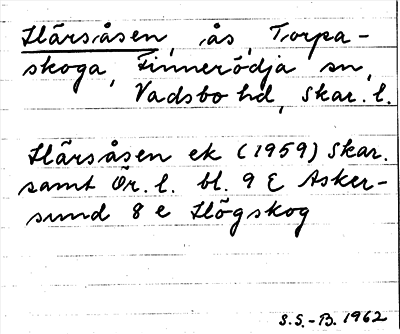 Härsåsen, ås, Torpa-
skoga, Finnerödja sn,
Vadsbo hd, Skar. l.
Härsåsen ek (1959) Skar.
samt Ör. l. bl. 9 E Asker-
sund 8 e Högskog
S.S.-B. 1962